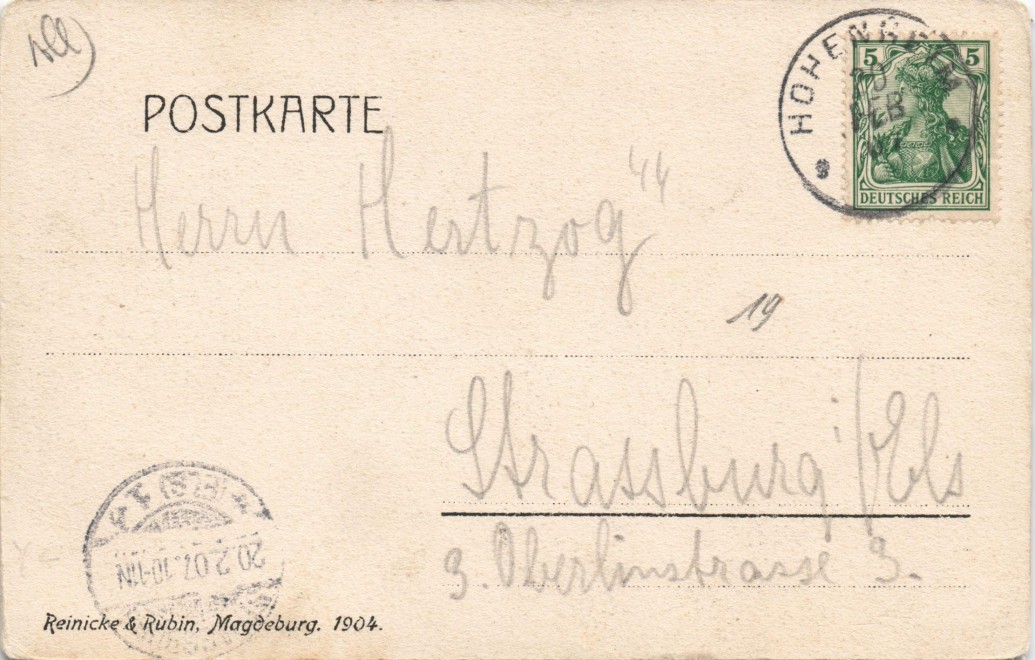 All
POSTKARTE
HOHENHEIM
20
FEB
07
5 5
DEUTSCHES REICH
Herrn Hertzog
19
Strassburg i/Els
3. Oberlinstrasse 3.
20.2.07.10-11N
Reinicke & Rubin, Magdeburg. 1904.